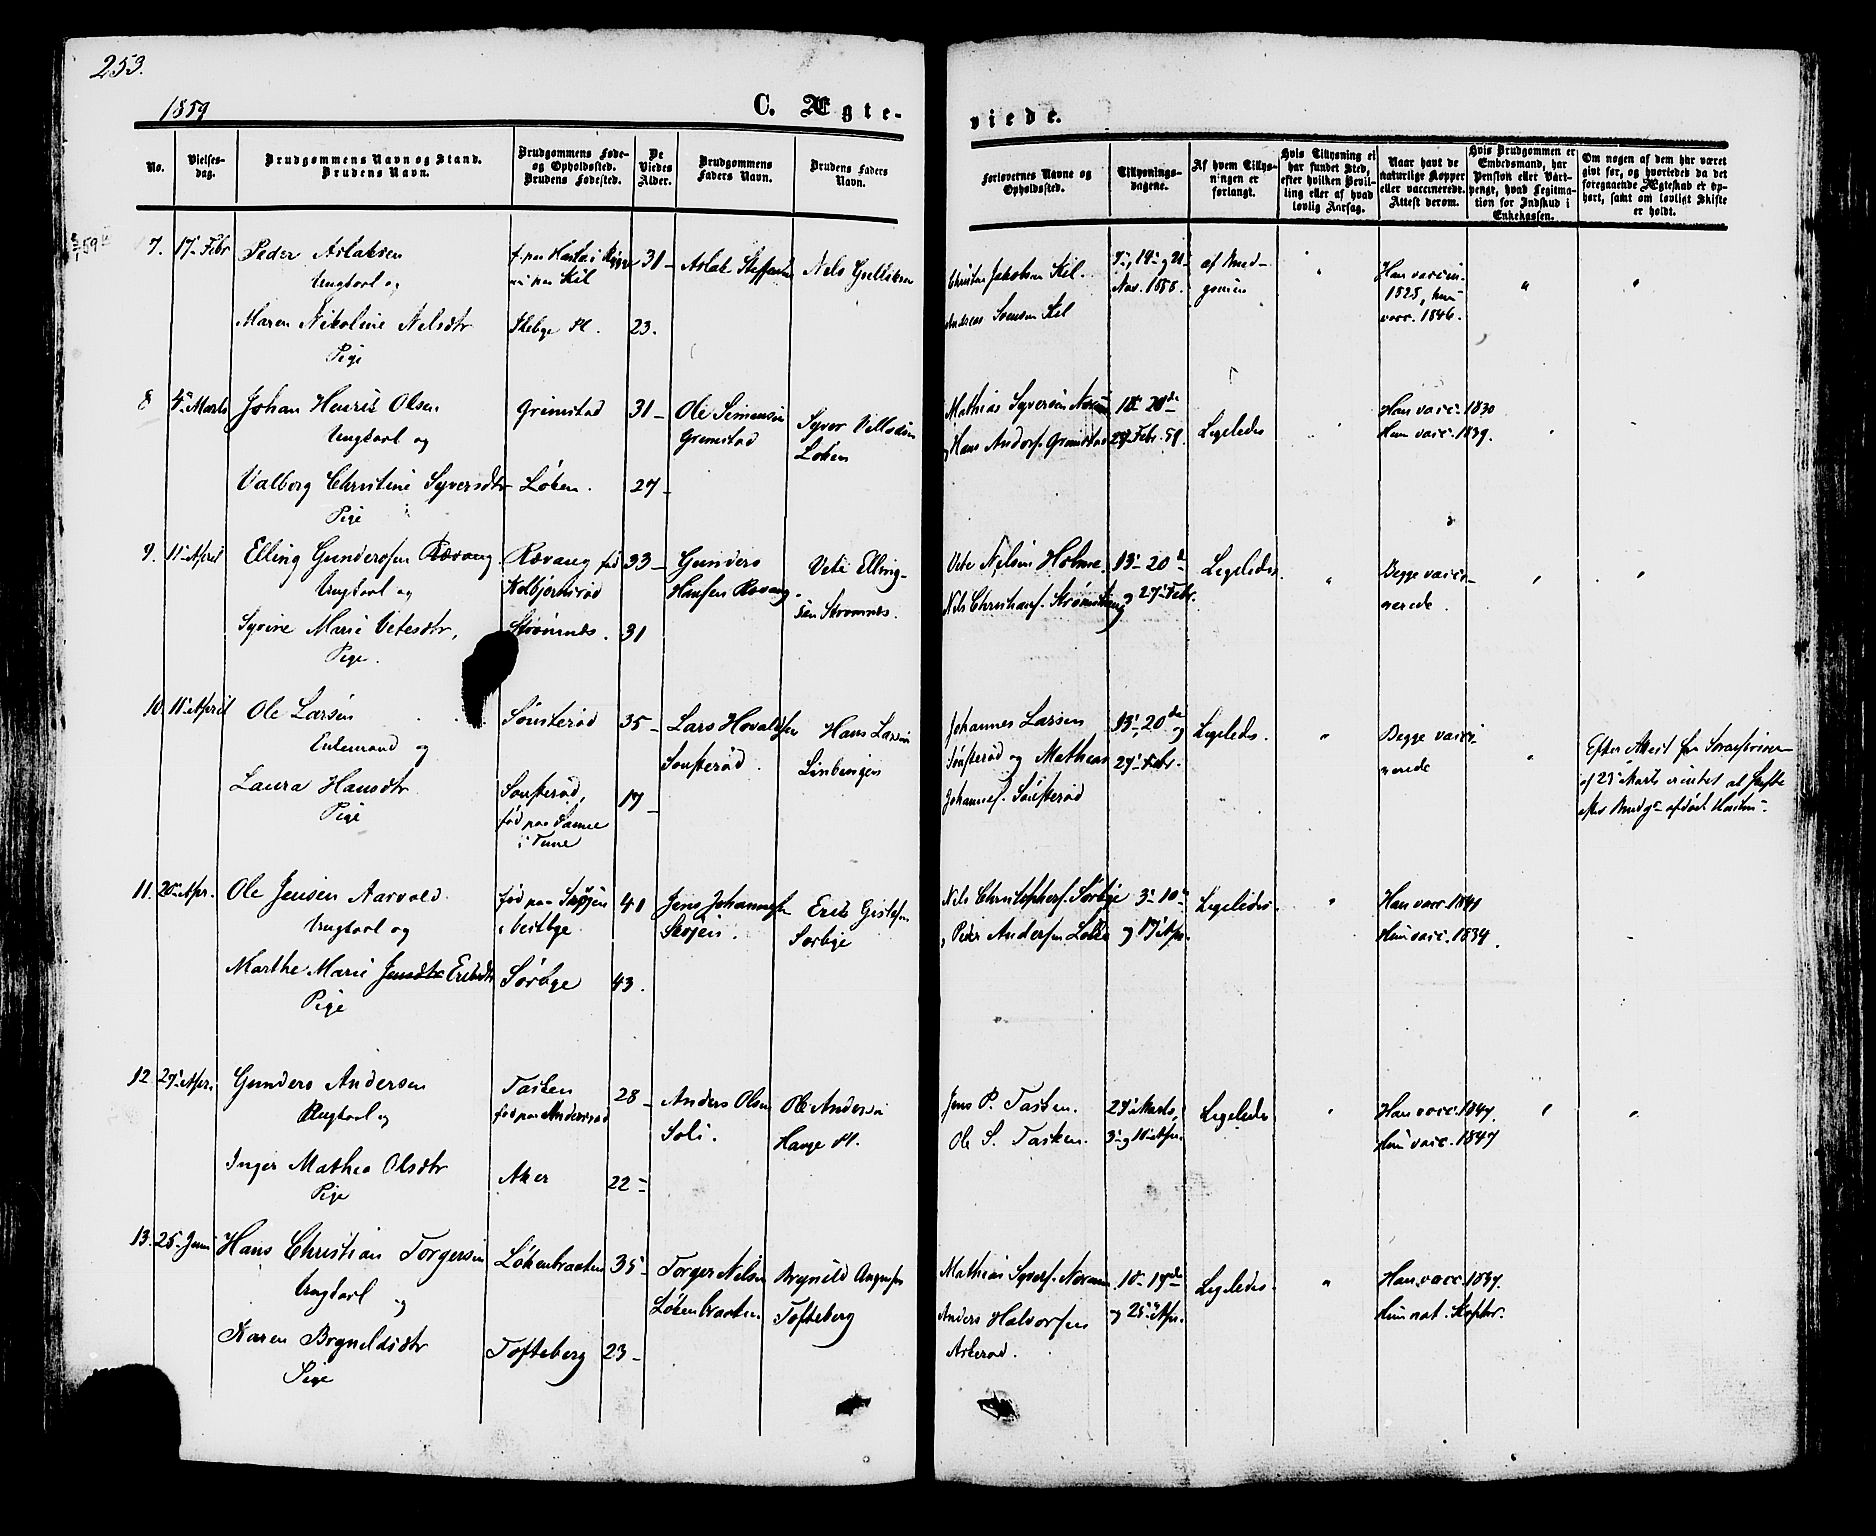 253.
1859
C. Ægte-
viede.
No.
Vielses-
dag.
Brudgommens Navn og Stand.
Brudens Navn.
Brudgommens Føde-
og Opholdssted.
Brudens Fødested.
De
Viedes
Alder.
Brudgommens
Faders Navn.
Brudens Faders
Navn.
Forlovernes Navne og
Opholdssted.
Tillysnings-
dagene.
Af hvem Tillys-
ningen er
forlangt.
Hvis Tillysning ei
har fundet Sted,
efter hvilken Bevil-
ling eller af hvad
lovlig Aarsag.
Naar havt de
naturlige Kopper
eller vaccinerede.
Attest derom.
Hvis Brudgommen er
Embedsmand, har
Pension eller Vart-
penge, hvad Legitima-
tion for Indskud i
Enkekassen.
Om nogen af dem har været
gift før, og hvorledes da det
foregaaende Ægteskab er op-
hørt, samt om lovligt Skifte
er holdt.
7. 17. Febr
Peder Aslaksen
Ungkarl og
Maren Nikoline Nelsdtr
Pige
Skebye Pl.
31
23.
Aslak Steffensen
Nels Gulliksen
Christen Jakobsen Kil.
Andreas Svensen Kil
7, 14 og 21
Nov. 1858.
af Brud-
gommen
Han vaccin.
1828, hun
vacc. 1846.
8 4 Marts
Johan Henrik Olsen
Ungkarl og
Valborg Christine Syversdtr
Pige
Grimstad
Løken.
31
27
Ole Simensen
Grimstad
Syver
Løken
Mathias Syversen
Hans Andersf. Grimstad
20de
27 Febr. 59.
Ligeledes
Han vacc. 1830
Hun vacc. 1839.
9. 11 April
Elling Gundersen Rævaug
Ungkarl og
Syvine Marie Vetesdtr,
Pige.
Rævaug fød
Kolbjørnsrød
Strømnes.
33
31
Gunders
Hansen Rævaug.
Vete Elling-
sen Strømnes.
Vete Nilsen Holme.
Nils Christians.
13 20
og 27 Febr.
Ligeledes.
Begge vacci-
nerede.
10. 11 April
Ole Larsen
Enkemand og
Laura Hansdtr.
Pige
Sønsterød
Sønsterød,
fød paa
i Tune
35
17
Lars Hovaldsen
Sønsterød.
Hans Larsen
Johannes Larsen
Sønsterød og Mathias
Johannesf. Sønsterød
13 20de og
27 Febr.
Ligeledes.
Begge vacci-
nerede
Efter Attest fra Sorenskriver
af 23 Marts er intet at skifte
efter Brudg afdøde Hustru.
11. 20 Apr.
Ole Jensen Aarvold
Ungkarl og
Marthe Marie Jensdtr Eriksdtr
Pige
fød paa Skøjen
i Vestbye
Sørbye
40
43.
Jens Johannesen
Skøjen.
Erik
Sørbye
Nils Christophers. Sørbye
Peder Andersen Løken
3 10
og 17 Apr.
Ligeledes.
Han vacc. 1841
Hun vacc. 1834.
12 27 Apr.
Gunders Andersen
Ungkarl og
Inger Mathea Olsdtr
Pige
Tasken
fød paa Andersrød
Aker
28
22
Anders Olsen
Soli.
Ole Andersen
Hauge Pl.
Jens P. Tasken.
Ole S. Tasken.
27 Marts,
3 og 10 Apr.
Ligeledes
Han vacc. 1847.
Hun vacc. 1847
13. 25 Juni
Hans Christian Torgersen
Ungkarl og
Karen Brynildsdtr
Pige
Løkenbraaten
Tofteberg
35
23
Torger Nilsen
Løkenbraaten.
Brynild
Tofteberg
Mathias Syversf.
Anders Halvorsen
Askerød.
10 17de
og 25 Apr.
Ligeledes.
Han vacc. 1837.
Hun nat. Kopper.